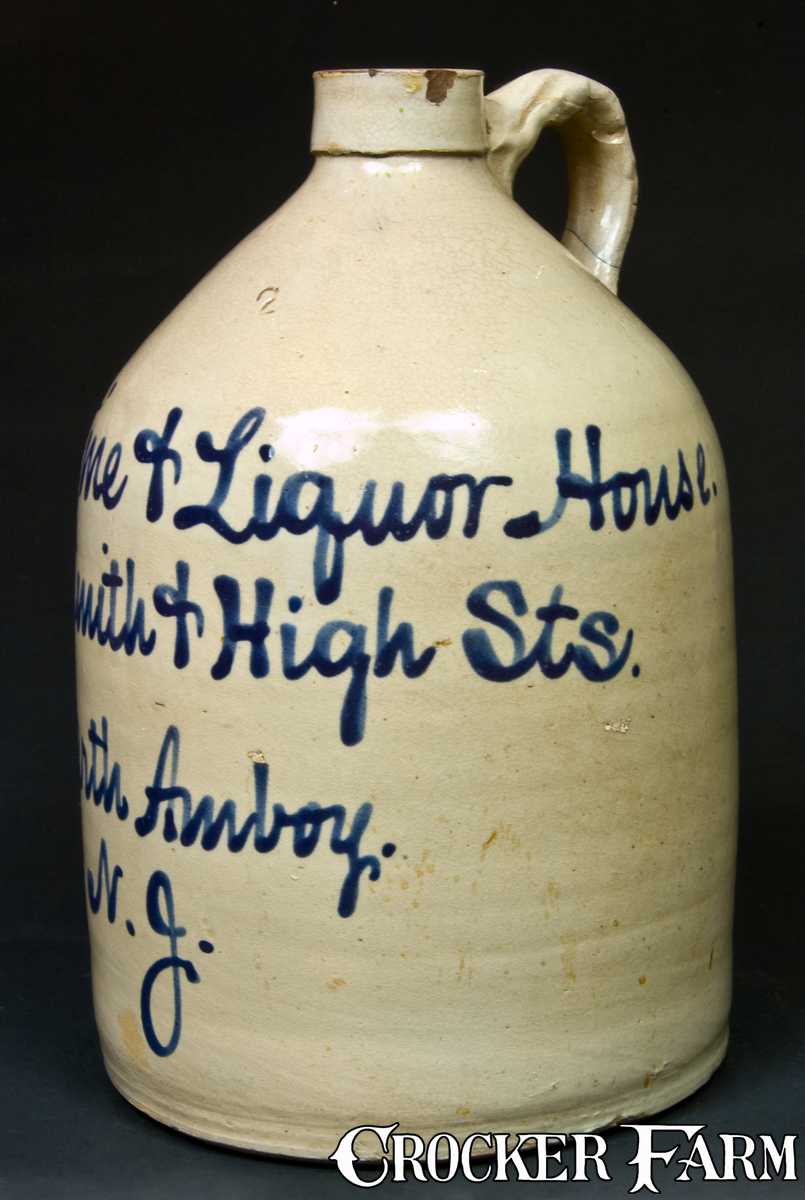 2
me & Liquor House.
mith & High Sts.
rth Amboy.
N. J.
CROCKER FARM